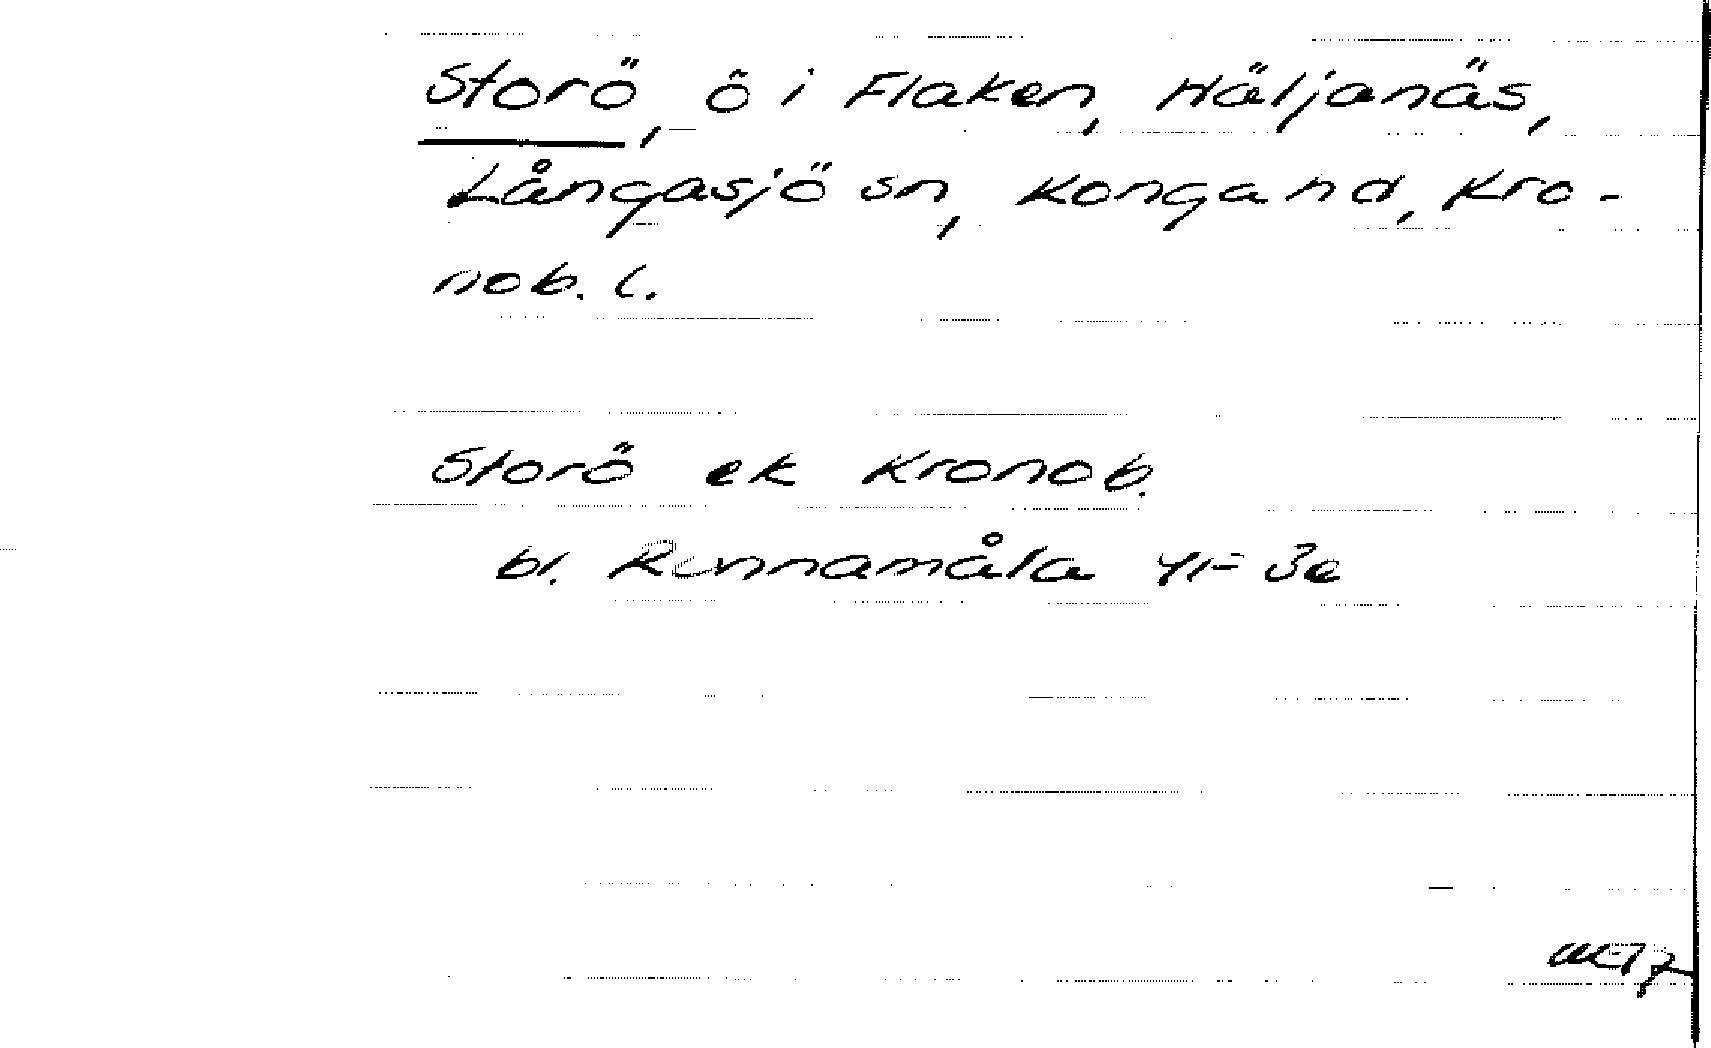 Storö, ö i Flaken, Häljanäs,
Långasjö sn, Konga hd, Kro-
nob. l.
Storö ek Kronob.
bl. Runnamåla 41- 3e